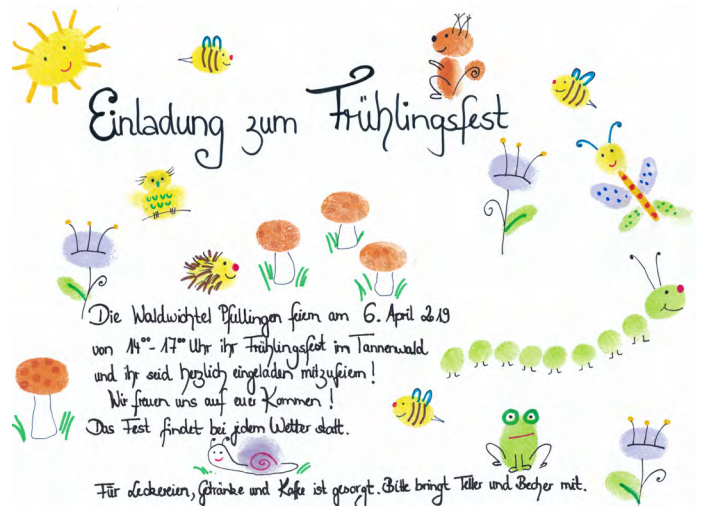 Einladung zum Frühlingsfest
Die Waldwichtel Pfullingen feiern am 6. April 2019
von 14⁰⁰-17⁰⁰ Uhr ihr Frühlingsfest im Tannenwald
und ihr seid herzlich eingeladen mitzufeiern!
Wir freuen uns auf euer Kommen!
Das Fest findet bei jedem Wetter statt.
Für Leckereien, Getränke und Kaffee ist gesorgt. Bitte bringt Teller und Becher mit.